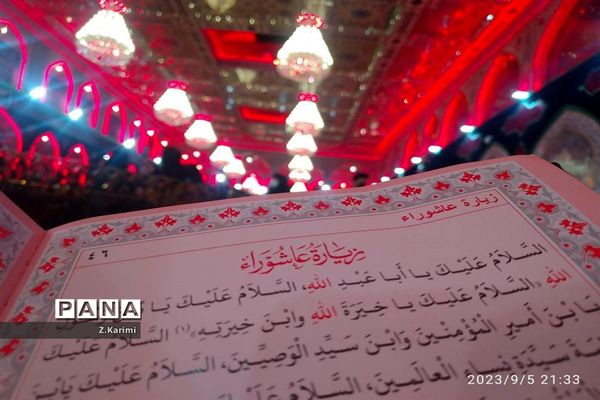 زيارة عاشوراء
٤٦
زيارة عاشوراء
السَّلَامُ عَلَيْكَ يا أَبا عَبْدِ اللهِ، السَّلَامُ عَلَيْكَ يَا
اللهِ السَّلَامُ عَلَيْكَ يا خِيَرَةَ اللهِ وابْنَ خِيَرَتِهِ»(١) السَّلامُ عَلَيْكَ
بْنَ أَمِيرِ الْمُؤْمِنِينَ وَابْنَ سَيِّدِ الْوَصِيِّينَ، السَّلَامُ عَلَيْكَ
سَيِّدَةِ نِساءِ الْعالَمِينَ، السَّلَامُ عَلَيْكَ
السَّلَامُ عَلَيْكَ
PANA
Z.Karimi
2023/9/5 21:33